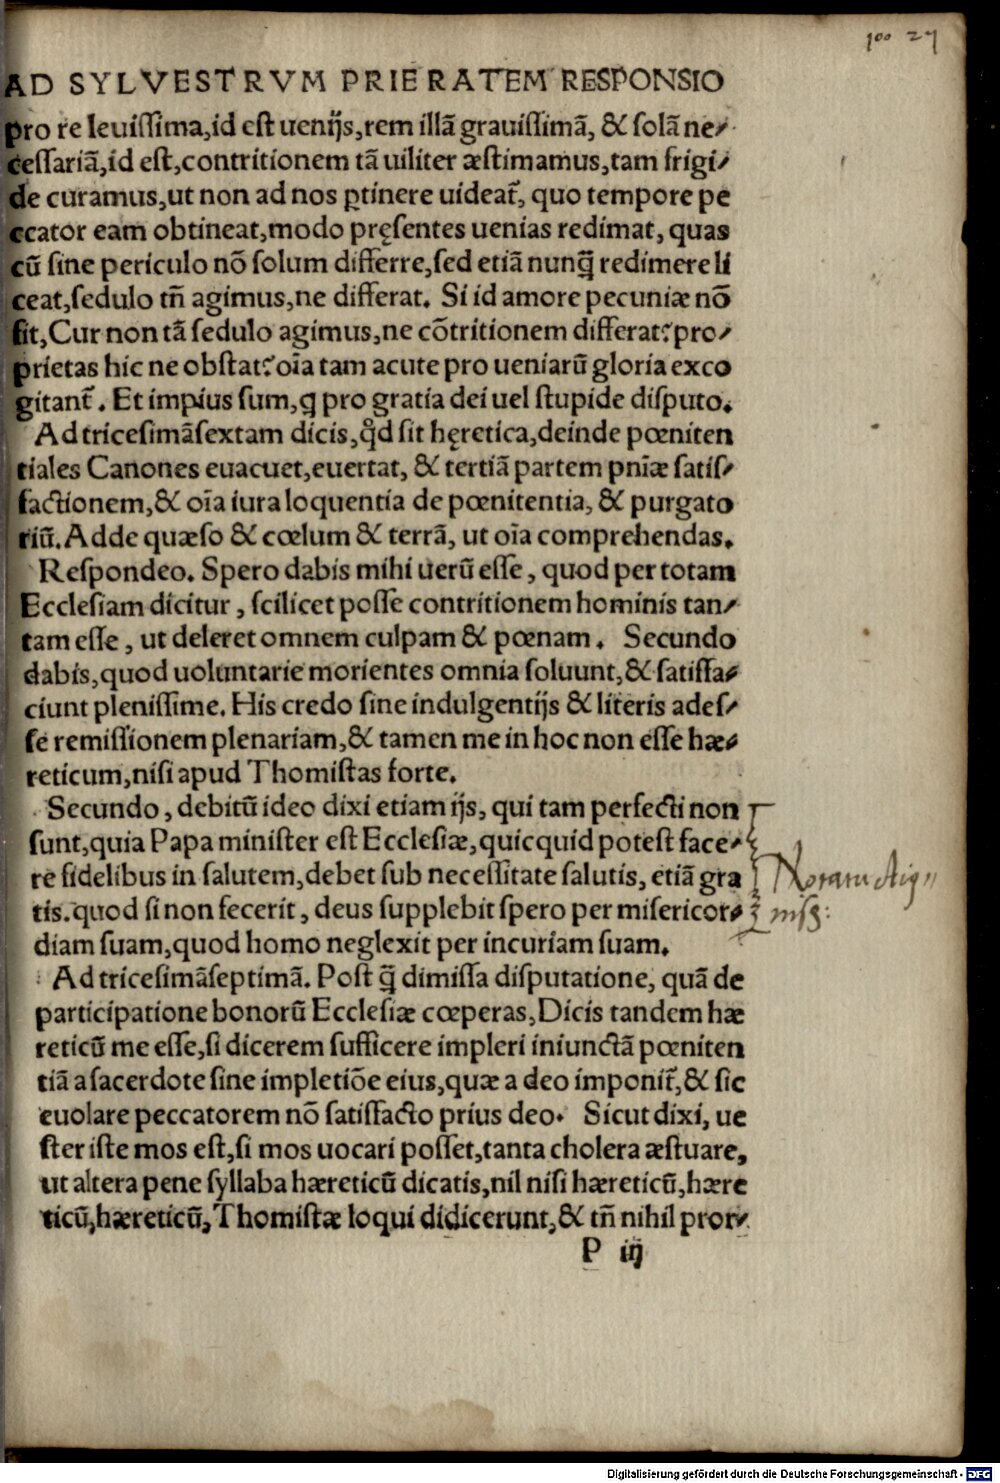 100 27
AD SYLVESTRVM PRIERATEM RESPONSIO
pro re leuissima,id est uenijs,rem illã grauissimã, & solã ne⸗
cessariã,id est,contritionem tã uiliter æstimamus,tam frigi⸗
de curamus,ut non ad nos ꝑtinere uideat᷑, quo tempore pe
ccator eam obtineat,modo pręsentes uenias redimat, quas
cũ sine periculo nõ solum differre,sed etiã nunq̃ redimere li
ceat,sedulo tñ agimus,ne differat. Si id amore pecuniæ nõ
sit,Cur non tã sedulo agimus,ne cõtritionem differat? pro⸗
prietas hic ne obstat? oĩa tam acute pro ueniarũ gloria exco
gitant᷑. Et impius sum,ꝙ pro gratia dei uel stupide disputo.
Ad tricesimãsextam dicis,qd̃ sit hęretica,deinde pœniten
tiales Canones euacuet,euertat, & tertiã partem pñiæ satis⸗
factionem,& oĩa iura loquentia de pœnitentia, & purgato
riũ.Adde quæso & cœlum & terrã, ut oĩa comprehendas.
Respondeo. Spero dabis mihi uerũ esse, quod per totam
Ecclesiam dicitur, scilicet posse contritionem hominis tan⸗
tam esse, ut deleret omnem culpam & pœnam. Secundo
dabis,quod uoluntarie morientes omnia soluunt,& satisfa⸗
ciunt plenissime. His credo sine indulgentijs & literis ades⸗
se remissionem plenariam,& tamen me in hoc non esse hæ⸗
reticum,nisi apud Thomistas forte.
Secundo, debitũ ideo dixi etiam ijs, qui tam perfecti non
sunt,quia Papa minister est Ecclesiæ,quicquid potest face⸗
re fidelibus in salutem,debet sub necessitate salutis, etiã gra
tis.quod si non fecerit, deus supplebit spero per misericor⸗
diam suam,quod homo neglexit per incuriam suam.
Ad tricesimãseptimã. Post q̃ dimissa disputatione, quã de
participatione bonorũ Ecclesiæ cœperas,Dicis tandem hæ
reticũ me esse,si dicerem sufficere impleri iniunctã pœniten
tiã a sacerdote sine impletiõe eius,quæ a deo imponit᷑,& sic
euolare peccatorem nõ satisfacto prius deo. Sicut dixi, ue
ster iste mos est,si mos uocari posset,tanta cholera æstuare,
ut altera pene syllaba hæreticũ dicatis,nil nisi hæreticũ,hære
ticũ,hæreticũ,Thomistæ loqui didicerunt,& tñ nihil pror⸗
P iij
Digitalisierung gefördert durch die Deutsche Forschungsgemeinschaft - DFG